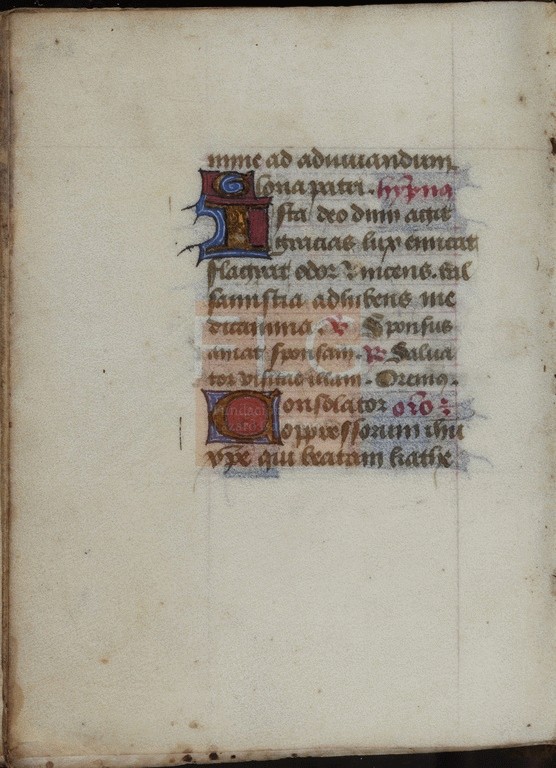 mine ad adiuuandum.
Gloria patri. hympnꝯ
Ista deo dum agit
gracias lux emicat
flagrat odor & nicens. sal
famistia adhibens me
dicamina. ℣ Sponsus
amat sponsam. ℟ Salua
tor visitat illam. Oremꝯ.
Consolator oro
oppressorum ihu
xpe qui beatam kathe